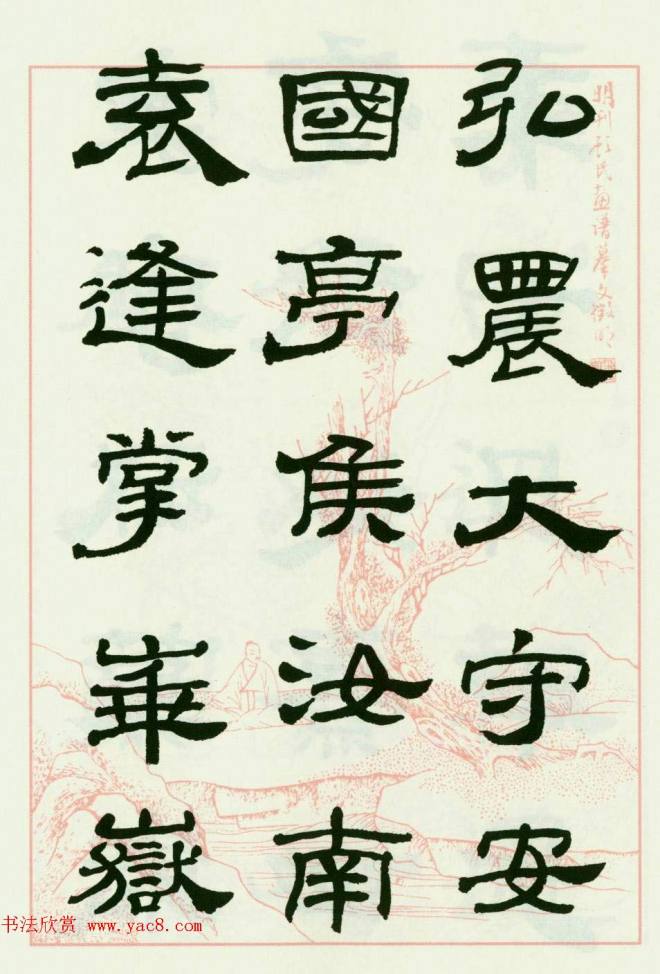 弘農大守安
國亭侯汝南
袁逢掌崋嶽
明刊顧氏畫譜摹文徵明
书法欣赏 www.yac8.com